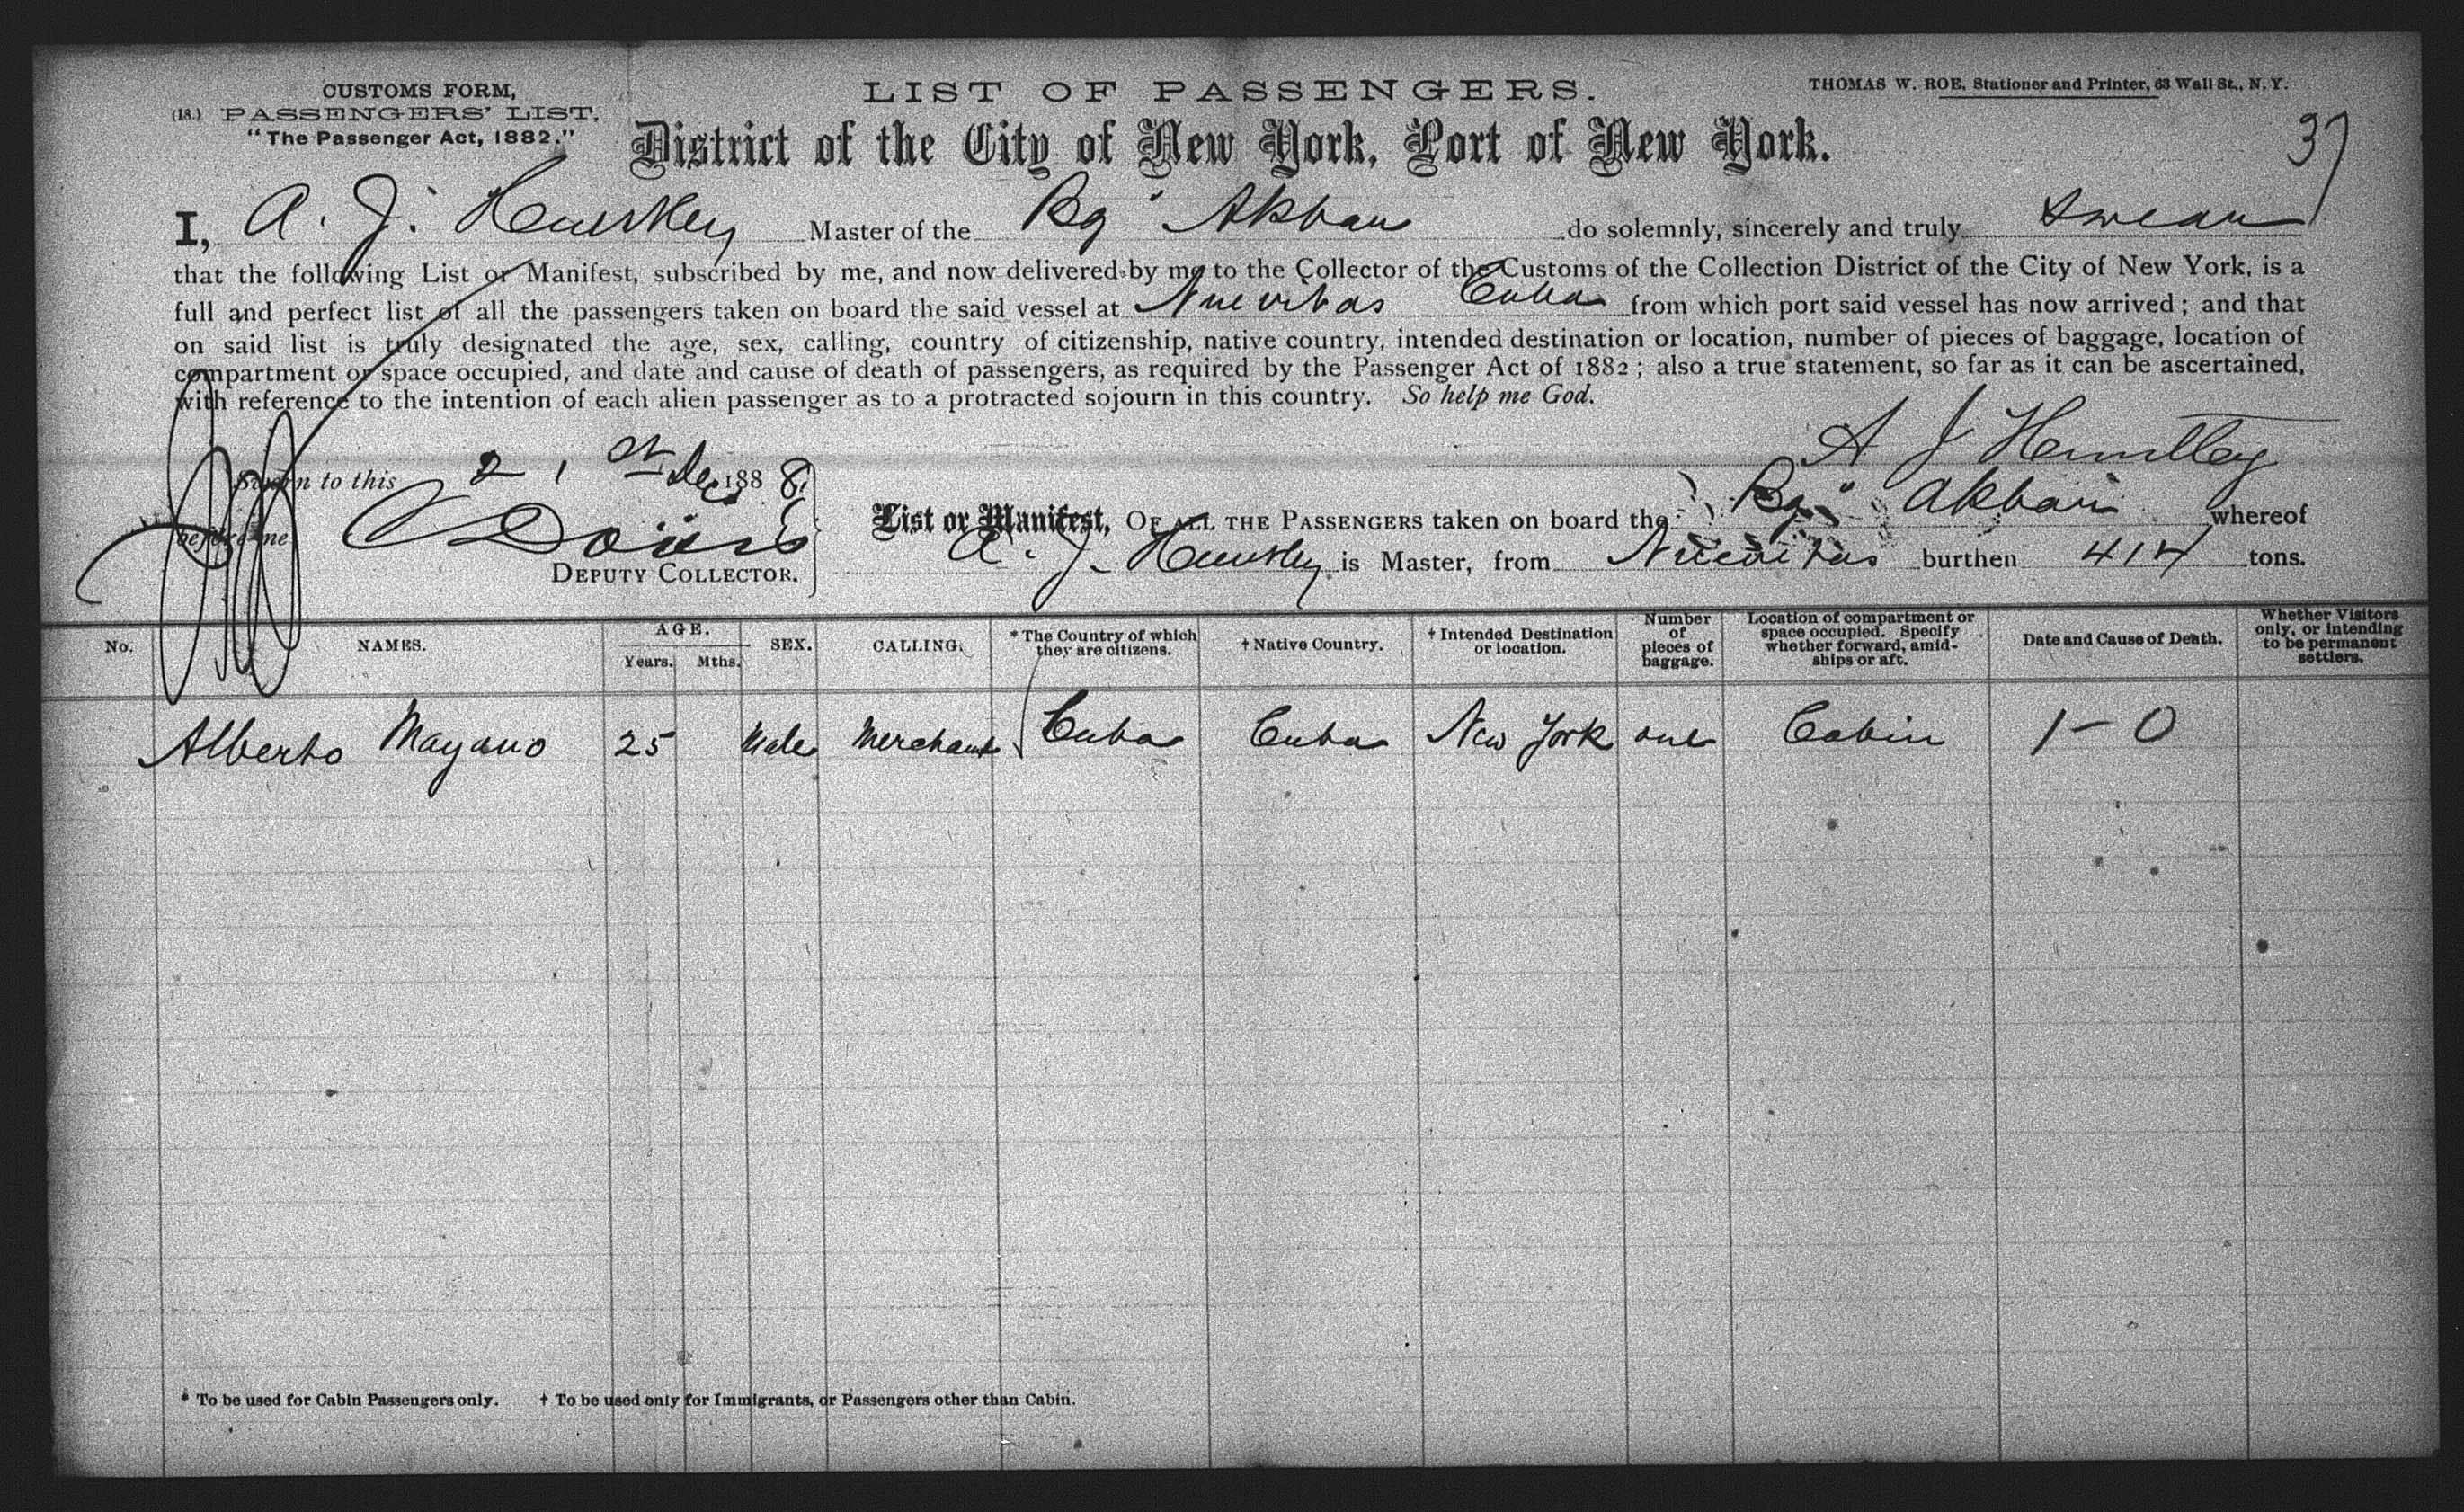 CUSTOMS FORM,
(18.) PASSENGERS' LIST,
"The Passenger Act, 1882."
LIST OF PASSENGERS.
THOMAS W. ROE, Stationer and Printer, 63 Wall St., N. Y.
District of the City of New York, Port of New York.
37
I, A. J. Master of the Bg" do solemnly, sincerely and truly swear
that the following List or Manifest, subscribed by me, and now delivered by me to the Collector of the Customs of the Collection District of the City of New York, is a
full and perfect list of all the passengers taken on board the said vessel at Nuevitas Cuba from which port said vessel has now arrived; and that
on said list is truly designated the age, sex, calling, country of citizenship, native country, intended destination or location, number of pieces of baggage, location of
compartment or space occupied, and date and cause of death of passengers, as required by the Passenger Act of 1882; also a true statement, so far as it can be ascertained,
with reference to the intention of each alien passenger as to a protracted sojourn in this country. So help me God.
A J
Sworn to this 21st Dec 1888
before me
DEPUTY COLLECTOR.
List or Manifest, OF ALL THE PASSENGERS taken on board the Bg" whereof
A. J. is Master, from Nuevitas burthen 414 tons.
No. NAMES. AGE. Years. Mths. SEX. CALLING. * The Country of which they are citizens. † Native Country. † Intended Destination or location. Number of pieces of baggage. Location of compartment or space occupied. Specify whether forward, amidships or aft. Date and Cause of Death. Whether Visitors only, or intending to be permanent settlers.
Alberto Mayano 25 Male Merchant Cuba Cuba New York one Cabin 1-0
* To be used for Cabin Passengers only. † To be used only for Immigrants, or Passengers other than Cabin.